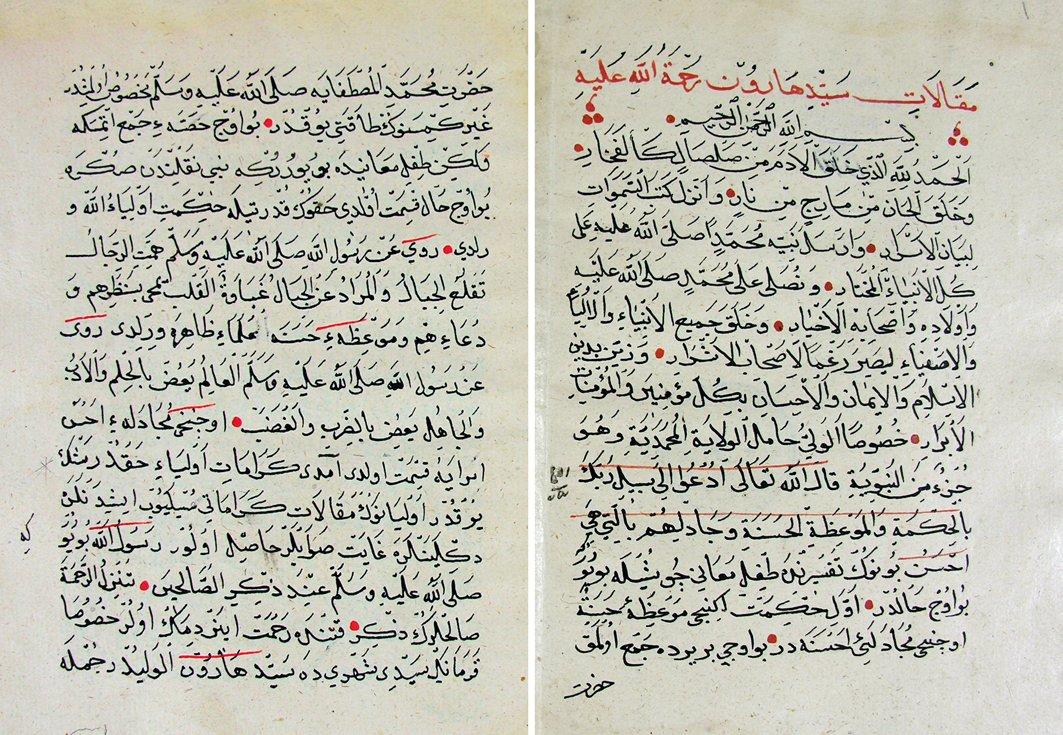 مقالات سيد هارون رحمة الله عليه
بسم الله الرحمن الرحيم
الحمد لله الذي خلق الادم من صلصال كالفخار
وخلق الجان من مارج من نار وانزل كتب السموات
لبيان الاسرار وارسل نبيه محمدا صلى الله عليه على
كل الانبياء المختار ونصلي على محمد صلى الله عليه
واولاده واصحابه الاخيار وخلق جميع الانبياء والاولياء
والاصفياء ليصير رغما لاصحاب الاشرار وزين بدين
الاسلام والايمان والاحسان بكل مؤمنين والمؤمنات
الابرار خصوصا الولي حامل الولاية المحمدية وهو
جزء من النبوية قال الله تعالى ادع الى سبيل ربك
بالحكمة والموعظة الحسنة وجادلهم بالتي هي
احسن بونوك تفسيرنده طفيل معاني جوشله بويو
بو اوچ حالدر اول حكمت ايكنجي موعظۀ حسنه
اوچنجي مجادلۀ احسنه در بو اوچي بر يرده جمع اولمق
حضرت
حضرت محمد المصطفايه صلى الله عليه وسلم مخصوص المشدر
غير كمسنوك طاقتي يوقدر بو اوچ حصه ء جمع اتمكه
ولكن طفيل معانيده بويورركه نبي نقلندن صكره
بو اوچ حال قسمت اولدي حقوك قدرتيله حكمت اولياء الله و
رلدي روي عن رسول الله صلى الله عليه وسلم همت الرجال
تقلع الجبال والمراد عن الجبال غباوة القلب تمحى بنظرهم و
دعاءهم وموعظه ء حسنه علماء ظاهره ورلدي روى
عن رسول الله صلى الله عليه وسلم العالم يعض بالحلم والادب
والجاهل يعض بالضرب والغضب اوچنجي مجادله ء احسن
امرايه قسمت اولدي امدي كرامات اولياء حقدر شك
يوقدر اوليانوك مقالات كراماتي سويليوب ايشدنلردن
دكلينلره غايت صوابلر حاصل اولور رسول الله بويو
صلى الله عليه وسلم عند ذكر الصالحين تتنزل الرحمة
صالحلروك ذكري قتنده رحمت اينر ديمك اولر خصوصا
قرمانيك سيدي شهري ده سيد هارون الوليدر رحمله